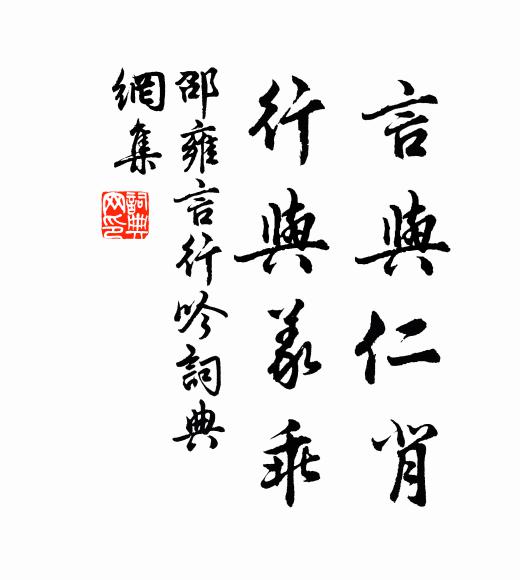 言與仁背
行與義乖
邵雍言行吟詞典
網集
詞典
网印